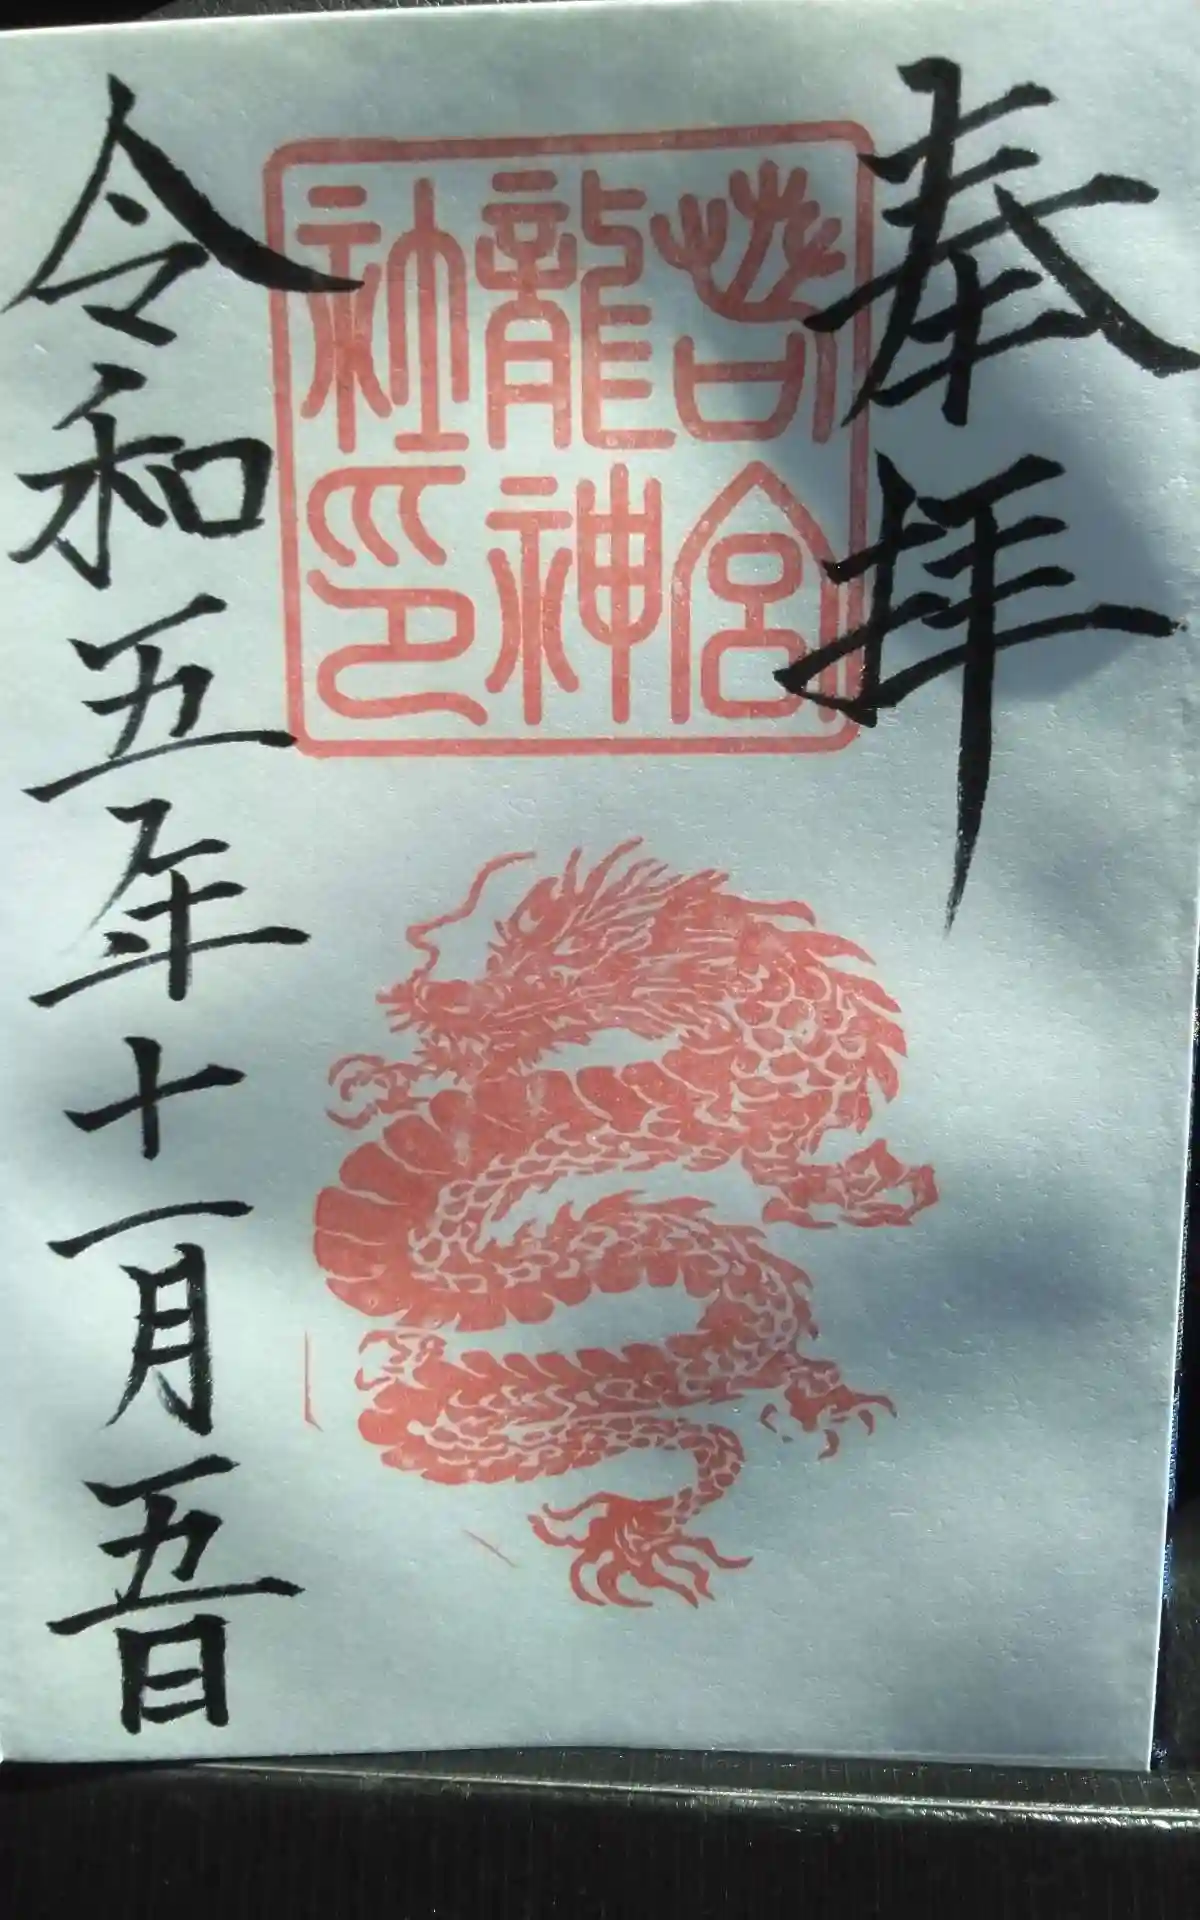 奉拝
若宮
龍神
社印
令和五年十一月五日